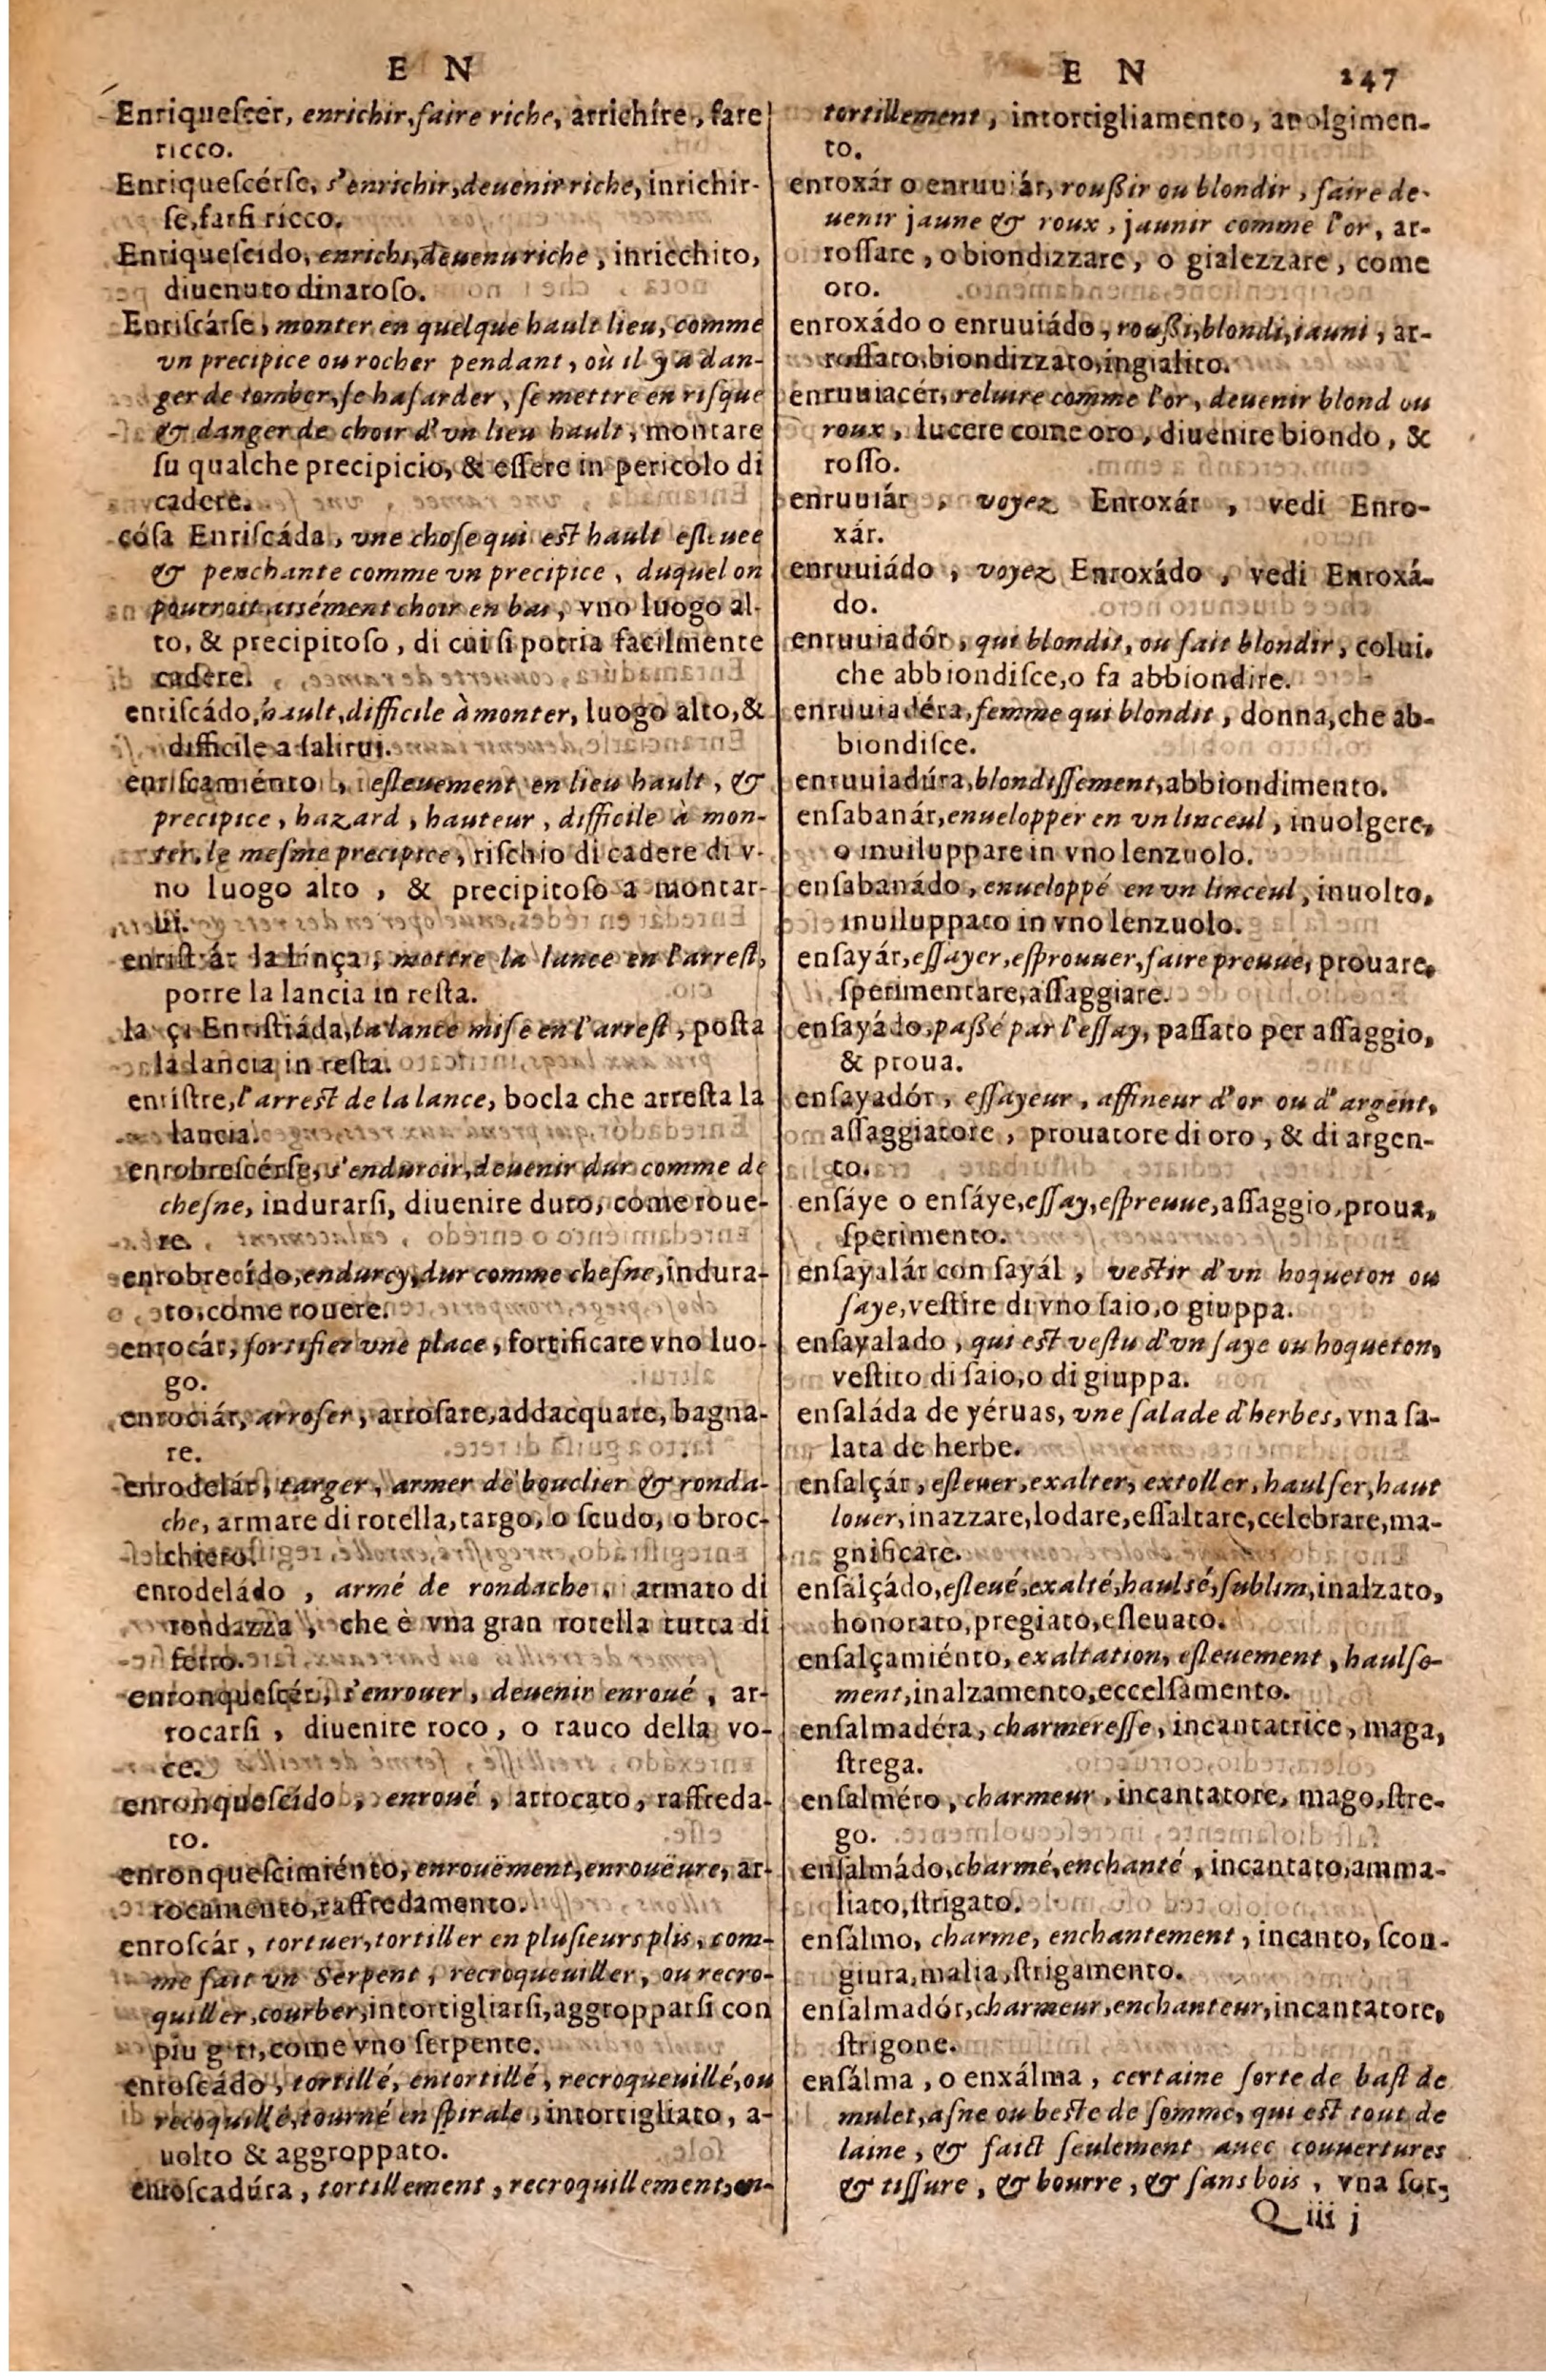 E N
Enriqueſcér, enrichir, faire riche, arrichíre, fare
ricco.
Enriqueſcérſe, s'enrichir, deuenir riche, inrichir-
ſe, farſi ricco.
Enriqueſcido, enrichi, deuenu riche, inricchito,
diuenuto dinaroſo.
Enriſcárſe, monter en quelque hault lieu, comme
vn precipice ou rocher pendant, où il y a dan-
ger de tomber, ſe haſarder, ſe mettre en riſque
& danger de choir d'vn lieu hault, montare
ſu qualche precipicio, & eſſere in pericolo di
cadere.
cóſa Enriſcáda, vne choſe qui est hault eſleuee
& penchante comme vn precipice, duquel on
pourroit aisément choir en bas, vno luogo al-
to, & precipitoſo, di cui ſi potria facilmente
cadere.
enriſcádo, hault, difficile à monter, luogo alto, &
difficile a ſalirui.
enriſcamiénto, eſleuement en lieu hault, &
precipice, hazard, hauteur, difficile à mon-
ter, le meſme precipice, riſchio di cadere di v-
no luogo alto, & precipitoſo a montar-
ui.
enriſtrár la lança, mettre la lance en l'arreſt,
porre la lancia in reſta.
lança Enriſtiáda, la lance miſe en l'arreſt, poſta
la lancia in reſta.
enriſtre, l'arrest de la lance, bocla che arreſta la
lancia.
enrobreſcérſe, s'endurcir, deuenir dur comme de
cheſne, indurarſi, diuenire duro, come roue-
re.
enrobrecído, endurcy, dur comme cheſne, indura-
to, come rouere.
enrocár, fortifier vne place, fortificare vno luo-
go.
enrociár, arroſer, arroſare, addacquare, bagna-
re.
enrodelár, targer, armer de bouclier & ronda-
che, armare di rotella, targo, o ſcudo, o broc-
chiero.
enrodeládo, armé de rondache, armato di
rondazza, che è vna gran rotella tutta di
ferro.
enronqueſcér, s'enrouer, deuenir enroué, ar-
rocarſi, diuenire roco, o rauco della vo-
ce.
enronqueſcído, enroué, arrocato, raffreda-
to.
enronqueſcimiénto, enrouëment, enrouëure, ar-
rocamento, raffredamento.
enroſcár, tortuer, tortiller en pluſieurs plis, com-
me fait vn Serpent, recroqueuiller, ou recro-
quiller, courber, intortigliarſi, aggropparſi con
piu giri, come vno ſerpente.
enroſcádo, tortillé, entortillé, recroqueuillé, ou
recoquillé, tourné en ſpirale, intortigliato, a-
uolto & aggroppato.
enroſcadúra, tortillement, recroquillement, en-
E N 247
tortillement, intortigliamento, auolgimen-
to.
enroxár o enruuiár, rouſsir ou blondir, faire de-
uenir jaune & roux, jaunir comme l'or, ar-
roſſare, o biondizzare, o gialezzare, come
oro.
enroxádo o enruuiádo, rouſsi, blondi, iauni, ar-
roſſato, biondizzato, ingialito.
enruuiacér, reluire comme l'or, deuenir blond ou
roux, lucere come oro, diuenire biondo, &
roſſo.
enruuiár, voyez Enroxár, vedi Enro-
xár.
enruuiádo, voyez Enroxádo, vedi Enroxá-
do.
enruuiadór, qui blondit, ou fait blondir, colui.
che abbiondiſce, o fa abbiondire.
enruuiadéra, femme qui blondit, donna, che ab-
biondiſce.
enruuiadúra, blondiſſement, abbiondimento.
enſabanár, enuelopper en vn linceul, inuolgere,
o inuiluppare in vno lenzuolo.
enſabanádo, enueloppé en vn linceul, inuolto,
inuiluppato in vno lenzuolo.
enſayár, eſſayer, eſprouuer, faire preuue, prouare,
ſperimentare, aſſaggiare.
enſayádo, paſsé par l'eſſay, paſſato per aſſaggio,
& proua.
enſayadór, eſſayeur, affineur d'or ou d'argent,
aſſaggiatore, prouatore di oro, & di argen-
to.
enſáye o enſáye, eſſay, eſpreuue, aſſaggio, proua,
ſperimento.
enſayalár con ſayál, vestir d'vn hoqueton ou
ſaye, veſtire di vno ſaio, o giuppa.
enſayalado, qui est veſtu d'vn ſaye ou hoqueton,
veſtito di ſaio, o di giuppa.
enſaláda de yéruas, vne ſalade d'herbes, vna ſa-
lata de herbe.
enſalçár, eſleuer, exalter, extoller, haulſer, haut
louer, inazzare, lodare, eſſaltare, celebrare, ma-
gnificare.
enſalçádo, eſleué, exalté, haulsé, ſublim, inalzato,
honorato, pregiato, eſleuato.
enſalçamiénto, exaltation, eſleuement, haulſe-
ment, inalzamento, eccelſamento.
enſalmadéra, charmereſſe, incantatrice, maga,
ſtrega.
enſalméro, charmeur, incantatore, mago, ſtre-
go.
enſalmádo, charmé, enchanté, incantato, amma-
liato, ſtrigato.
enſálmo, charme, enchantement, incanto, ſcon-
giura, malia, ſtrigamento.
enſalmadór, charmeur, enchanteur, incantatore,
ſtrigone.
enſálma, o enxálma, certaine ſorte de baſt de
mulet, aſne ou beſte de ſomme, qui est tout de
laine, & faict ſeulement auec couuertures
& tiſſure, & bourre, & ſans bois, vna ſor-
Q iii j